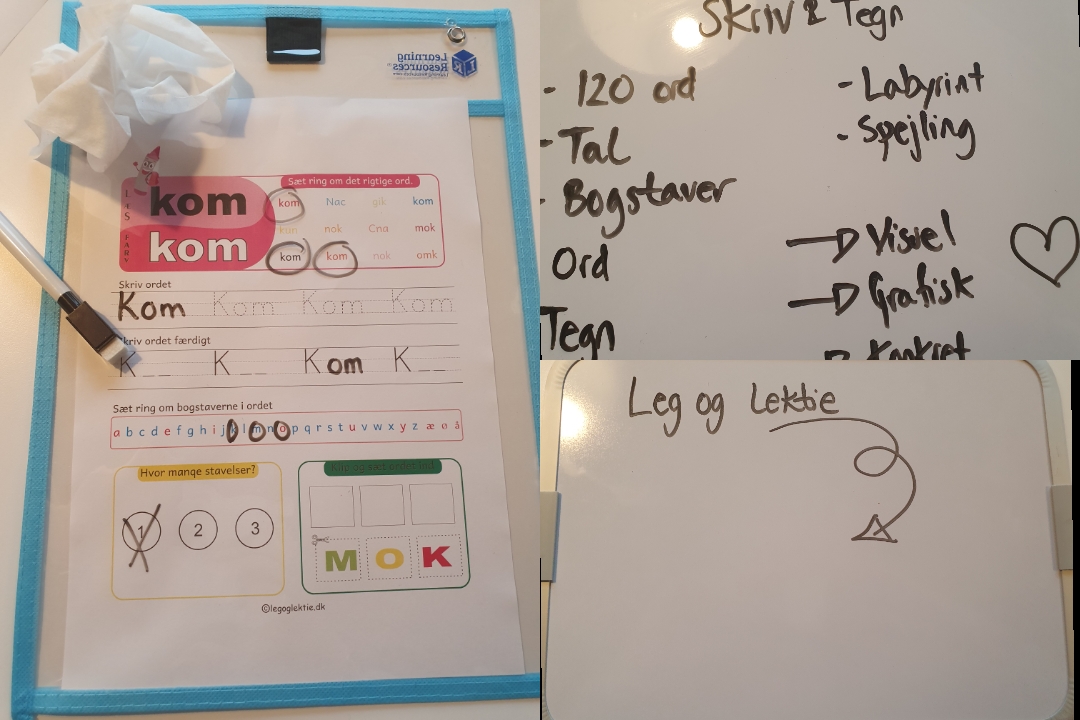 Learning
Resources
LÆS
FARV
kom
kom
Sæt ring om det rigtige ord.
kom Nac gik kom
kun nok Cna mok
kom kom nok omk
Skriv ordet
Kom Kom Kom Kom
Skriv ordet færdigt
K__ K__ Kom K__
Sæt ring om bogstaverne i ordet
a b c d e f g h i j k l m n o p q r s t u v w x y z æ ø å
Hvor mange stavelser?
1 2 3
Klip og sæt ordet ind
M O K
©legoglektie.dk
Skriv & Tegn
- 120 ord
- Tal
- Bogstaver
Ord
Tegn
- Labyrint
- Spejling
Visuel
Grafisk
Konkret
Leg og Lektie